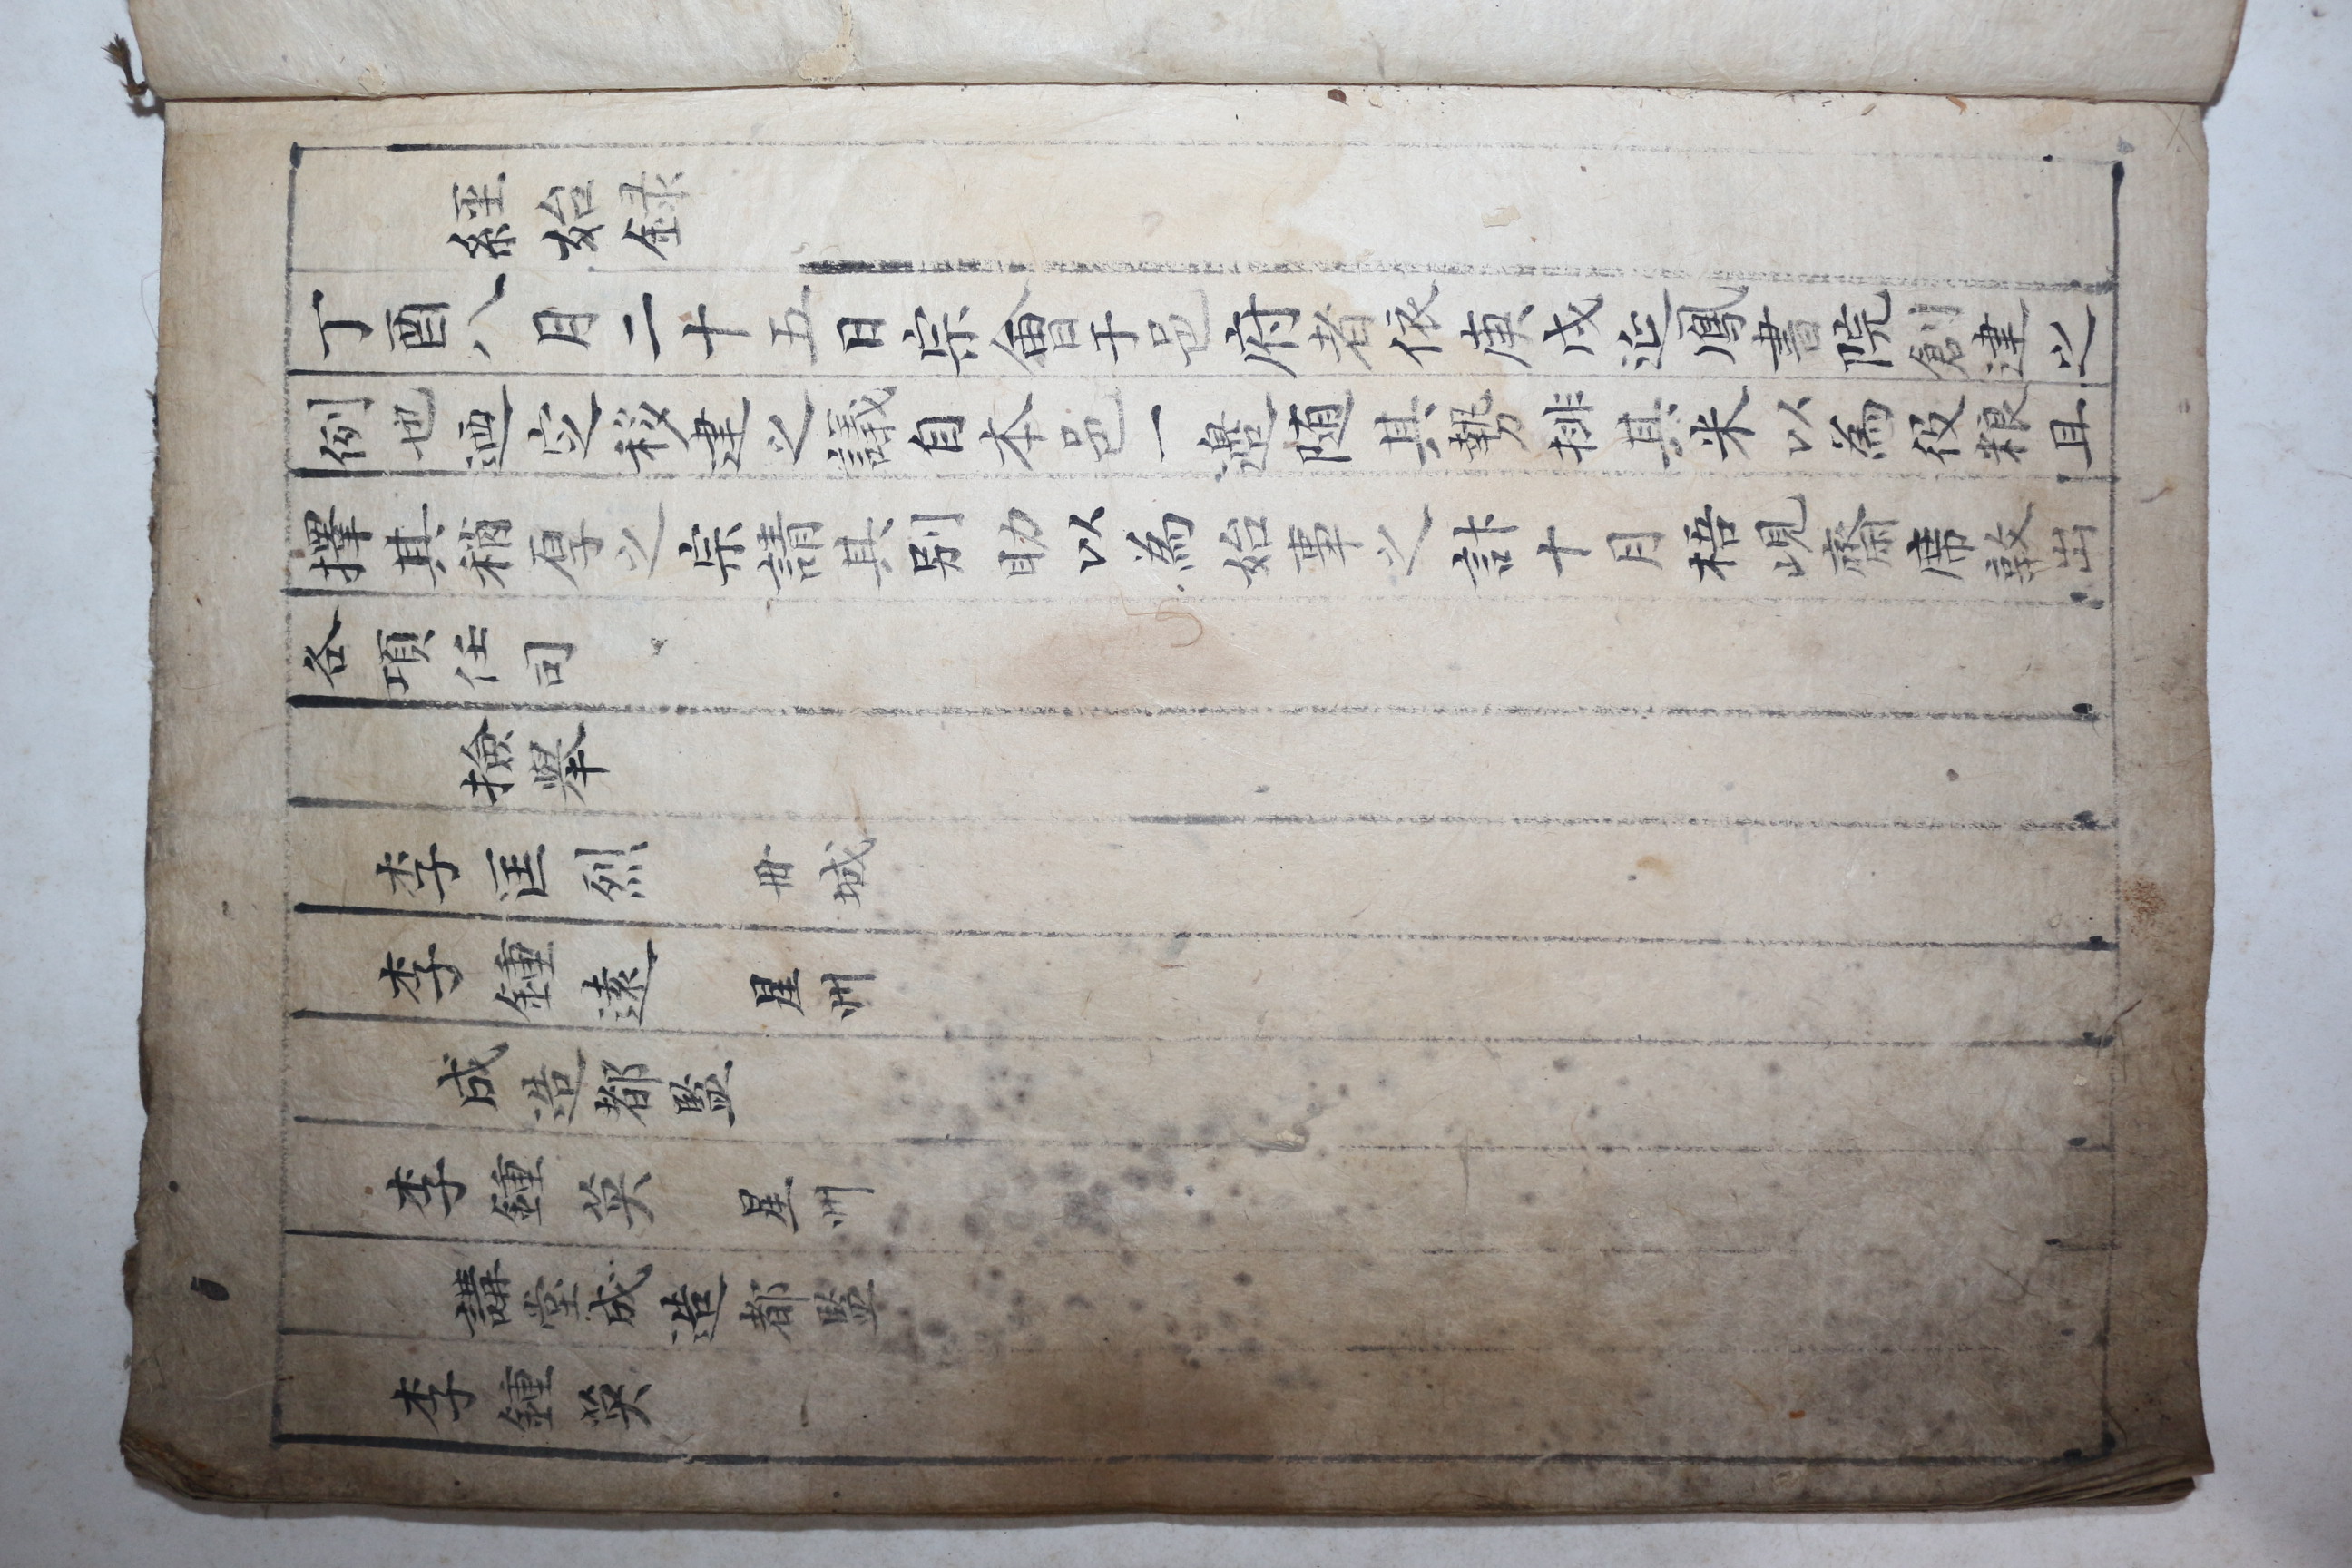 經始録
丁酉八月二十五日宗會于邑府者依庚戌迎鳳書院創建之
例也廼定移建之議自本邑一邊隨其勢排其米以爲役粮且
擇其稍厚之宗請其別助以爲始事之計十月梧峴齋席敦出
各項任司
撿擧
李匡烈 丹城
李鍾遠 星州
成造都監
李鍾英 星州
講堂成造都監
李鍾英